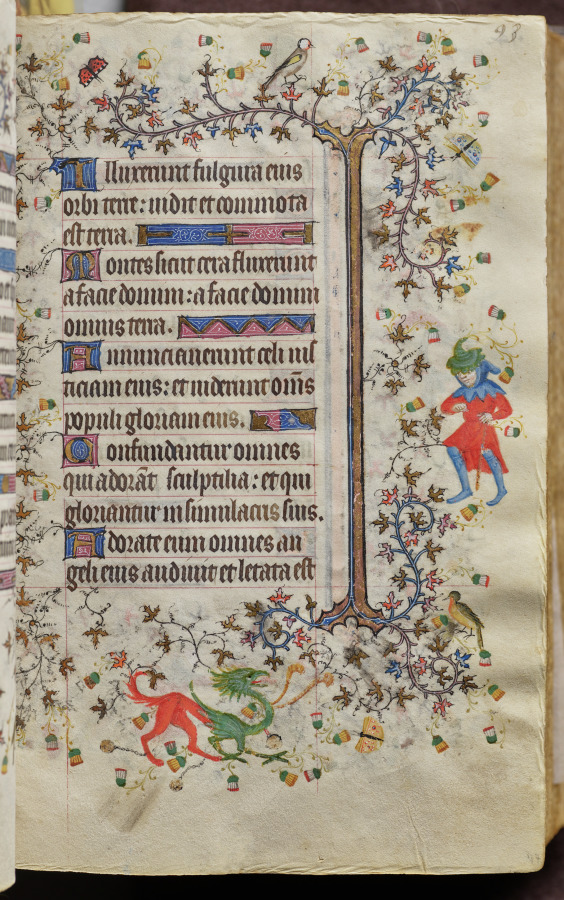 93
Illuxerunt fulgura eius
orbi terre: uidit et commota
est terra.
Montes sicut cera fluxerunt
a facie domini: a facie domini
omnis terra.
Annunciauerunt celi ius
ticiam eius: et uiderunt om̄s
populi gloriam eius.
Confundantur omnes
qui adorāt sculptilia: et qui
gloriantur in simulacris suis.
Adorate eum omnes an
geli eius audiuit et letata est